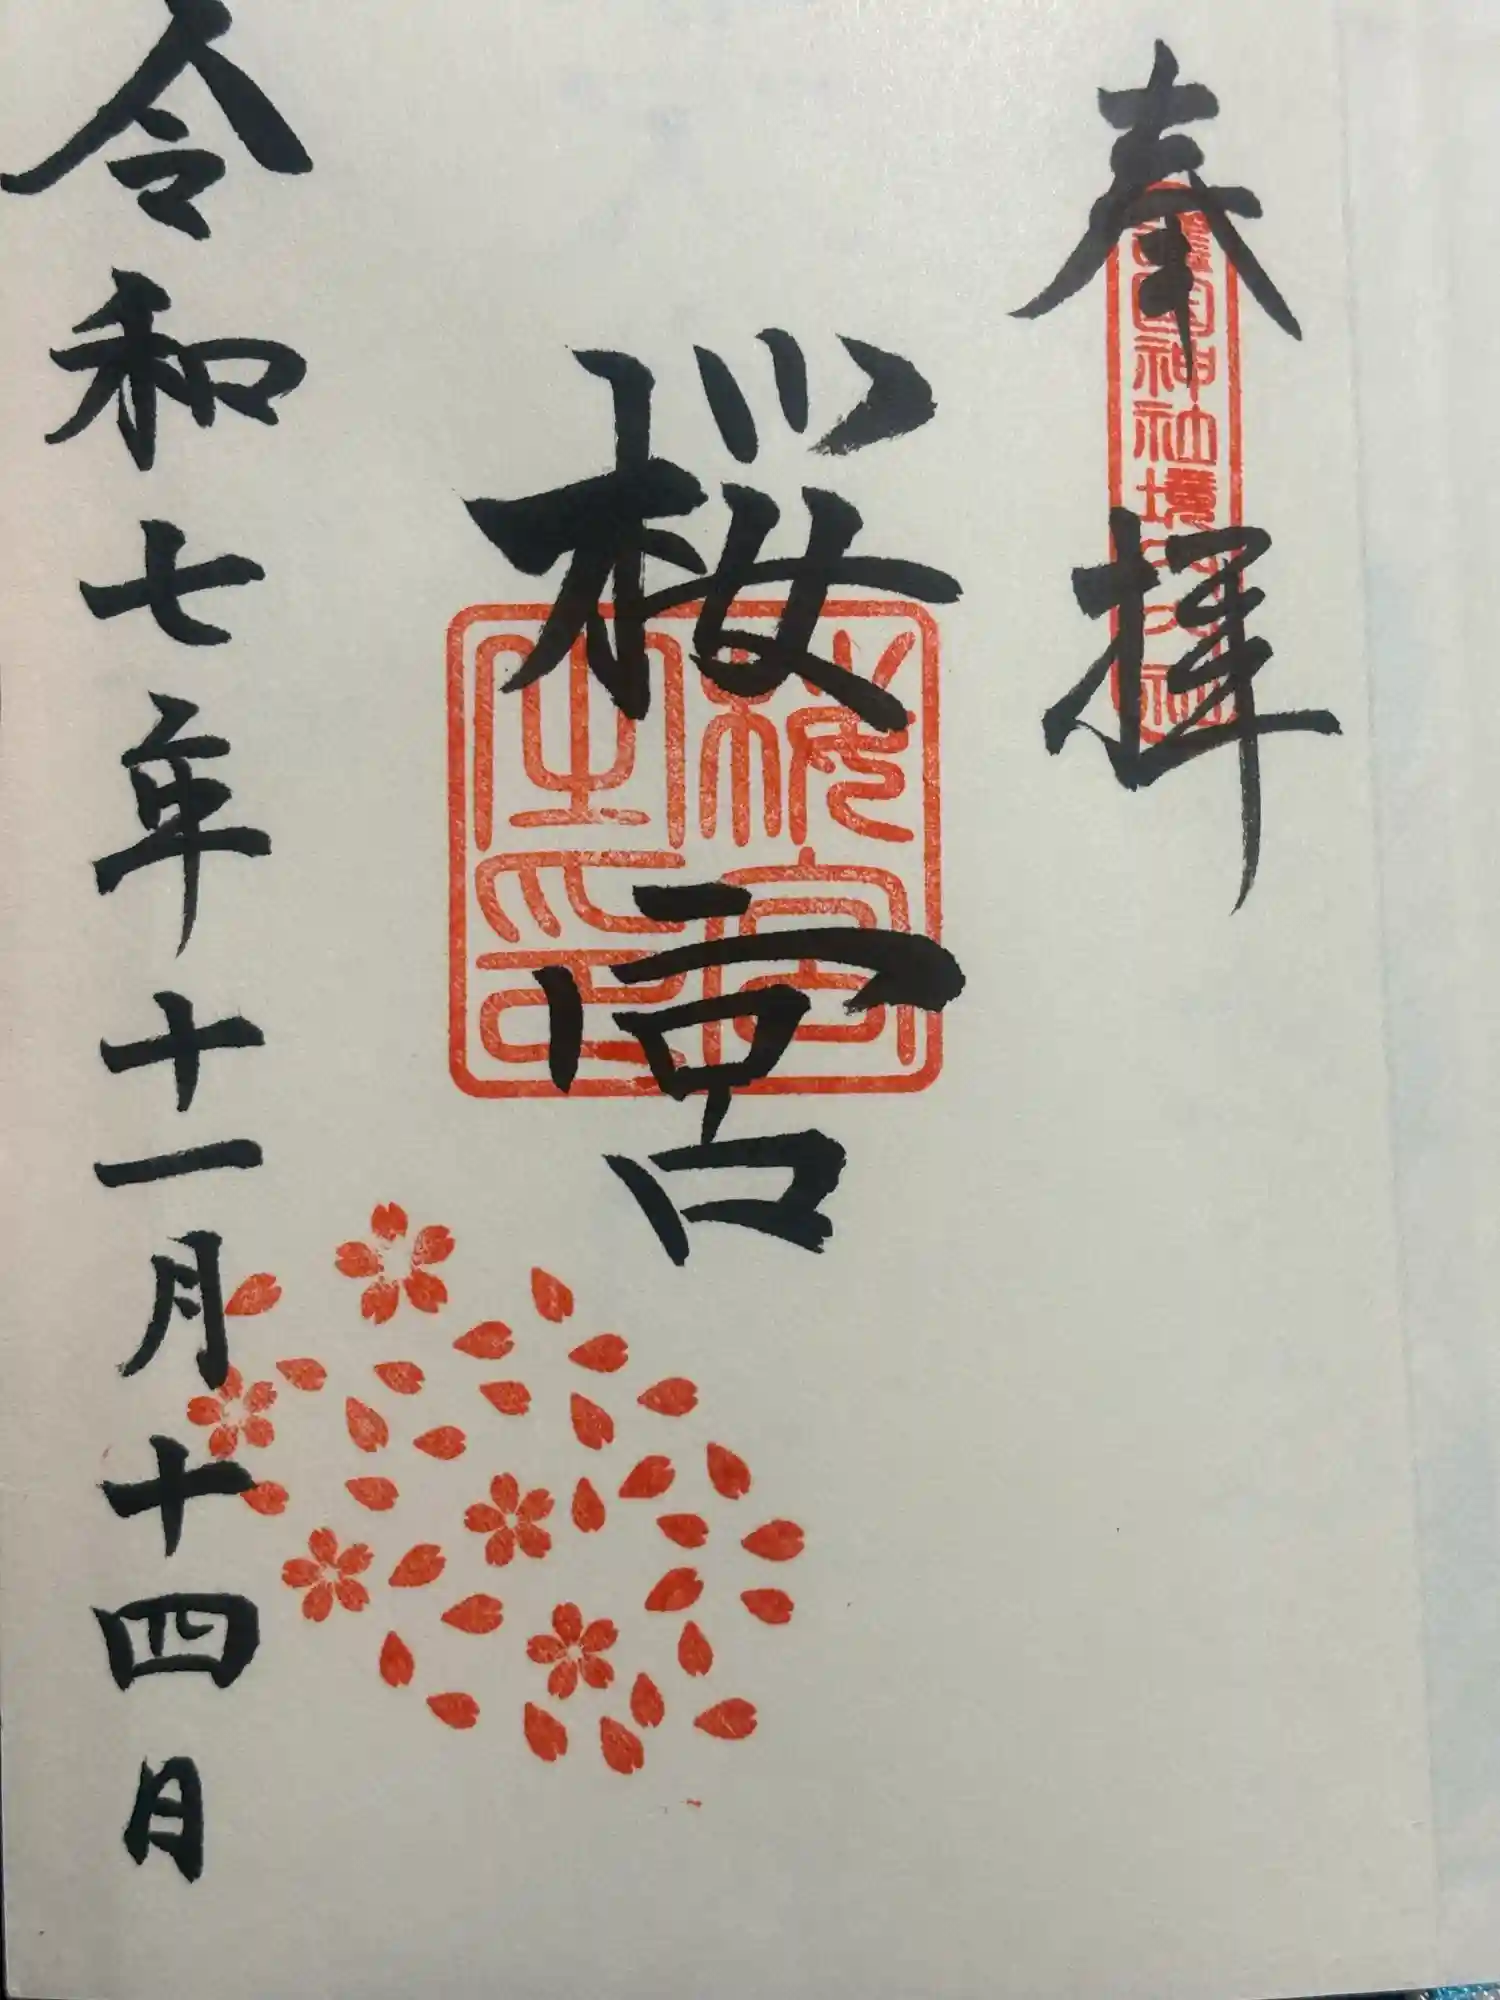 奉拝
國神社境内
桜宮
桜宮之印
令和七年十一月十四日